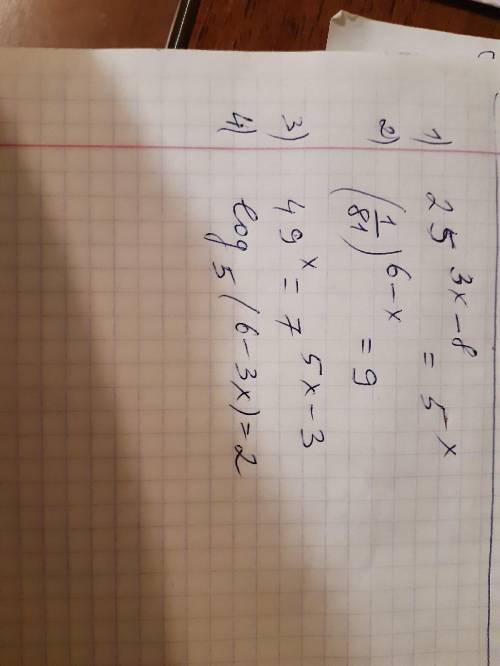 1) 25^{3x-8} = 5^{-x}
2) (1/81)^{6-x} = 9
3) 49^x = 7^{5x-3}
4) log_5 (6-3x)=2